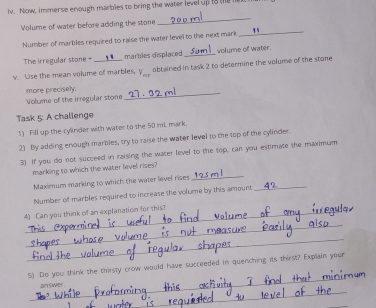 iv. Now, immerse enough marbles to bring the water level up to the
Volume of water before adding the stone 200 ml
Number of marbles required to raise the water level to the next mark 11
The irregular stone = 11 marbles displaced 50ml volume of water.
v. Use the mean volume of marbles, V obtained in task 2 to determine the volume of the stone
more precisely.
Volume of the irregular stone 27.02 ml
Task 5: A challenge
1) Fill up the cylinder with water to the 50 mL mark.
2) By adding enough marbles, try to raise the water level to the top of the cylinder.
3) If you do not succeed in raising the water level to the top, can you estimate the maximum
marking to which the water level rises?
Maximum marking to which the water level rises 125 ml
Number of marbles required to increase the volume by this amount 42
4) Can you think of an explanation for this?
This experiment is useful to find volume of any irregular
shapes whose volume is not measure easily also
find the volume of regular shapes
5) Do you think the thirsty crow would have succeeded in quenching its thirst? Explain your
answer
While Proforming this activity I find that minimum
of water is required to level of the